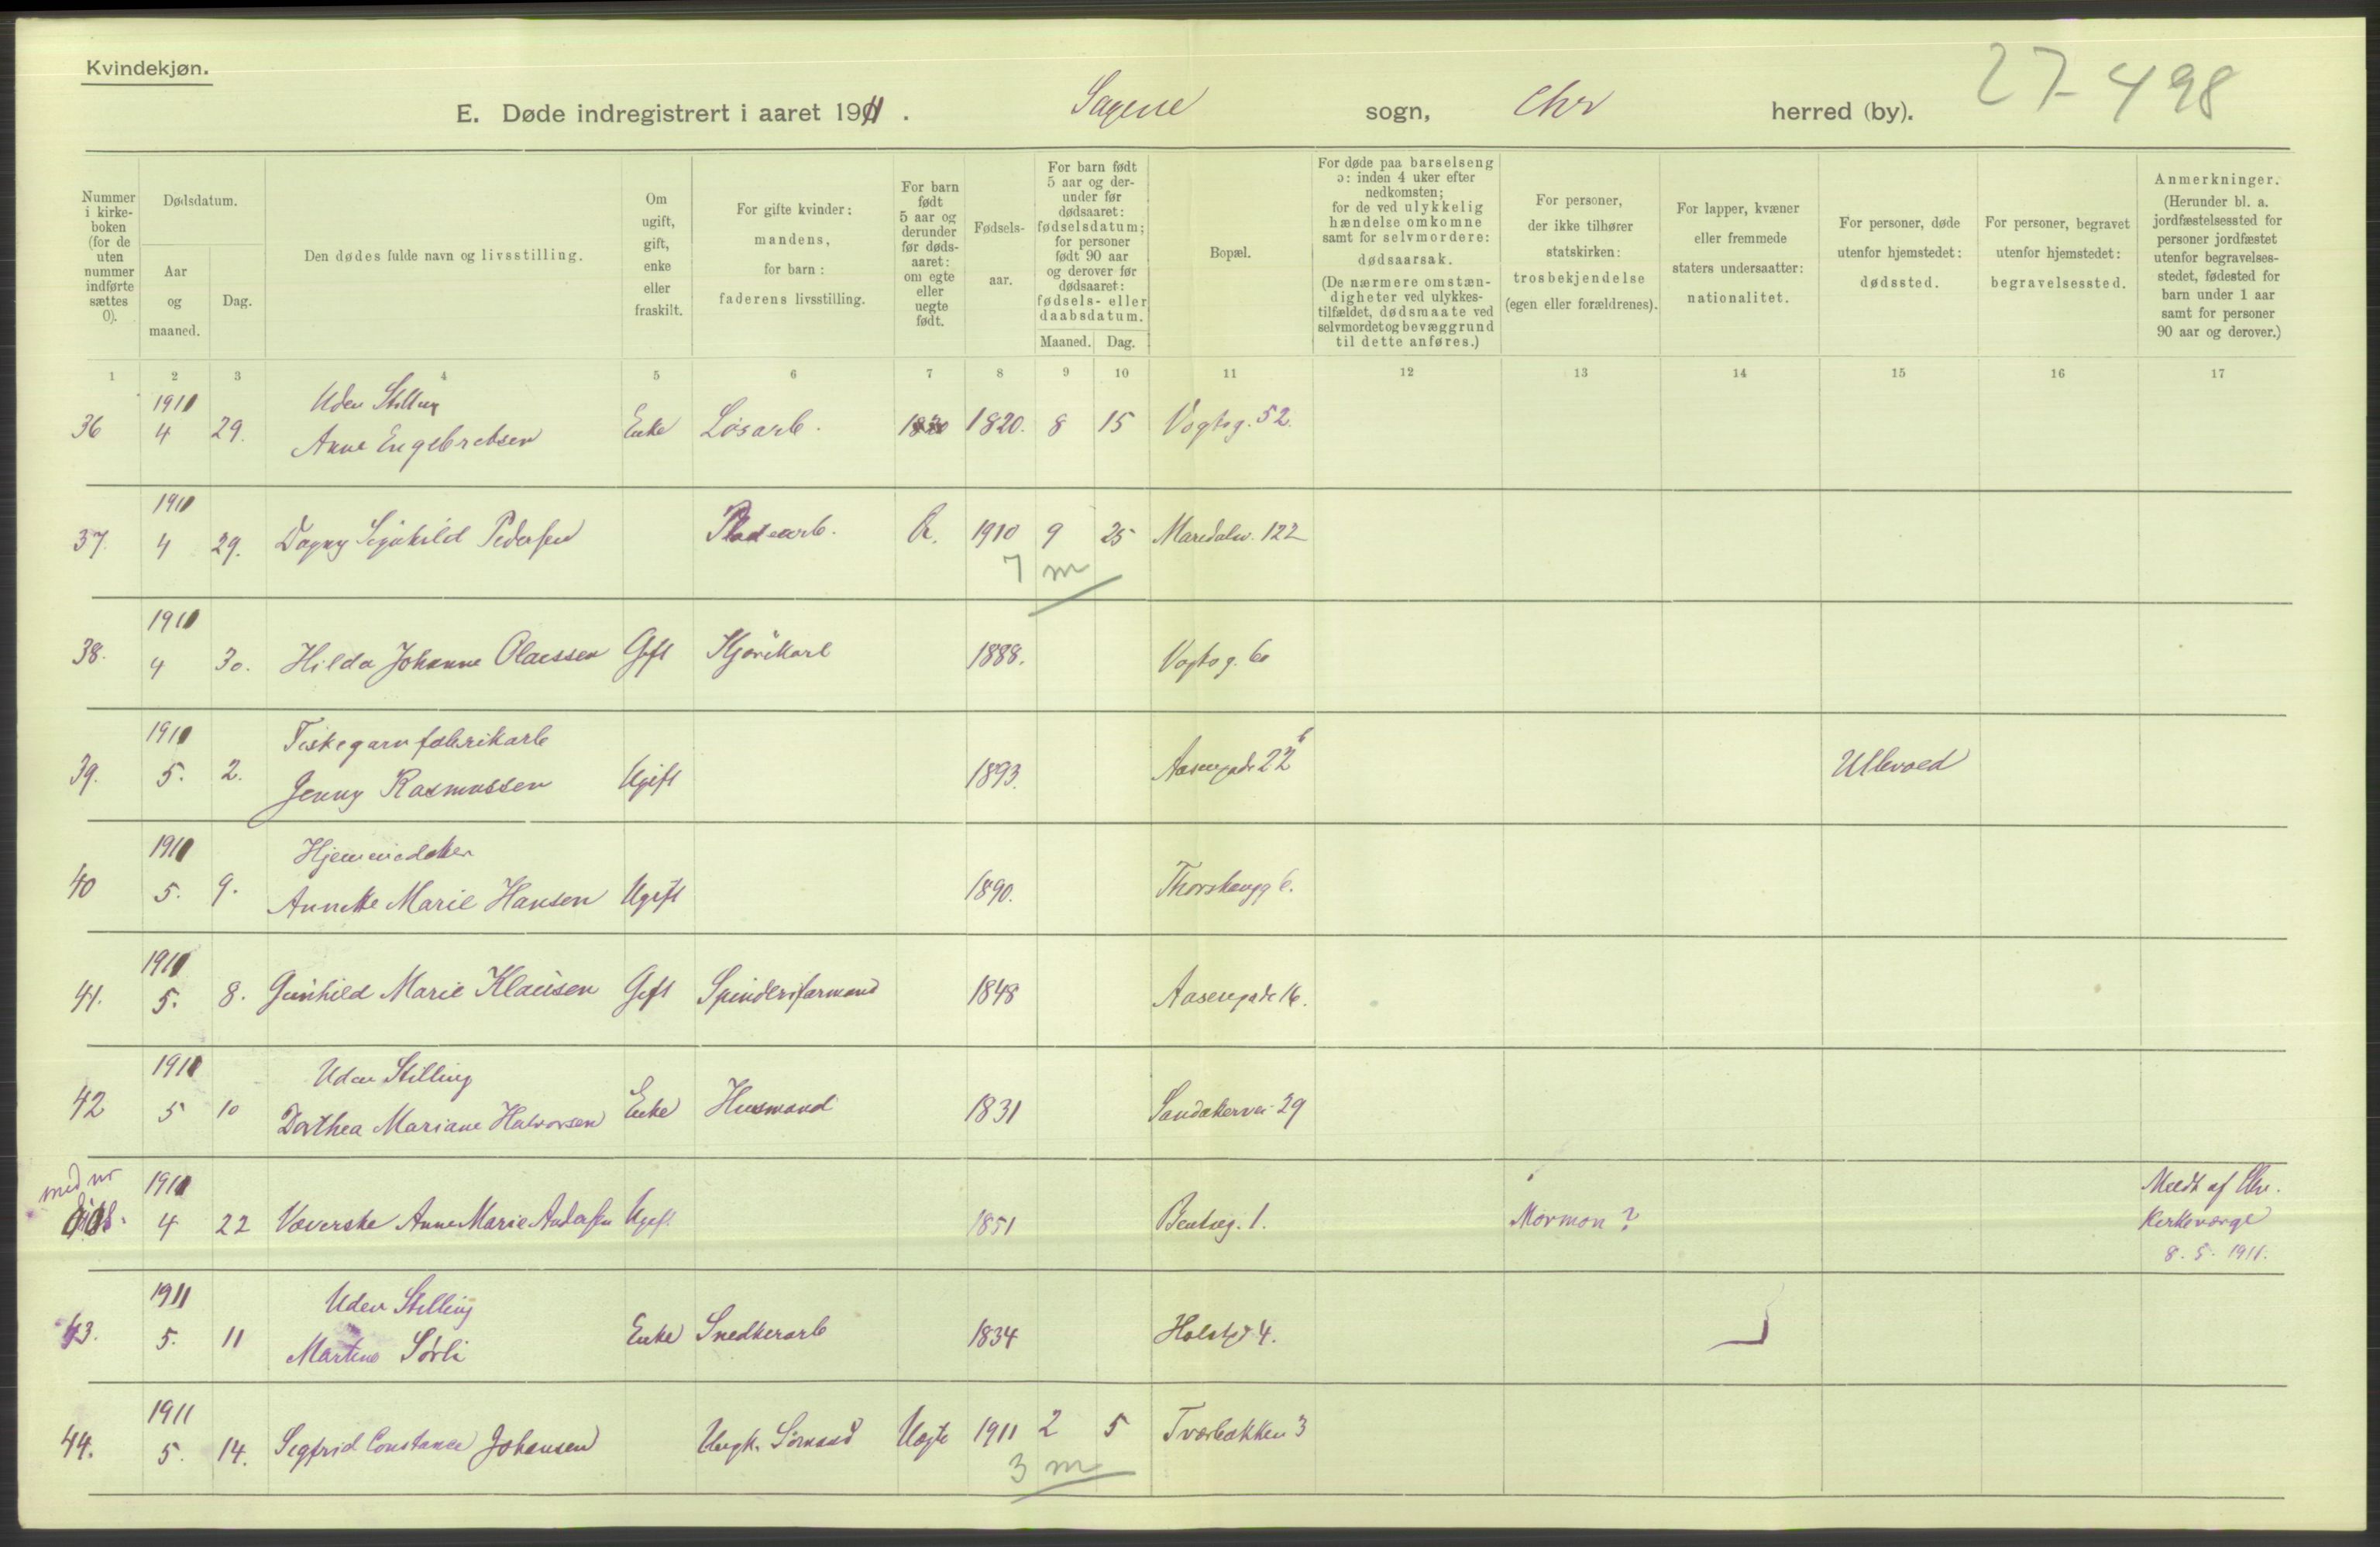 Kvindekjøn.
27-498
E. Døde indregistrert i aaret 1911. Sagene sogn, Chr herred (by).
Nummer i kirkeboken (for de uten nummer indførte sættes 0).
Dødsdatum.
Aar og maaned.
Dag.
Den dødes fulde navn og livsstilling.
Om ugift, gift, enke eller fraskilt.
For gifte kvinder: mandens, for barn: faderens livsstilling.
For barn født 5 aar og derunder før dødsaaret: om egte eller uegte født.
Fødselsaar.
For barn født 5 aar og derunder før dødsaaret: fødselsdatum; for personer født 90 aar og derover før dødsaaret: fødsels- eller daabsdatum.
Maaned. Dag.
Bopæl.
For døde paa barselseng ɔ: inden 4 uker efter nedkomsten; for de ved ulykkelig hændelse omkomne samt for selvmordere: dødsaarsak. (De nærmere omstændigheter ved ulykkestilfældet, dødsmaate ved selvmordet og bevæggrund til dette anføres.)
For personer, der ikke tilhører statskirken: trosbekjendelse (egen eller forældrenes).
For lapper, kvæner eller fremmede staters undersaatter: nationalitet.
For personer, døde utenfor hjemstedet: dødssted.
For personer, begravet utenfor hjemstedet: begravelsessted.
Anmerkninger. (Herunder bl. a. jordfæstelsessted for personer jordfæstet utenfor begravelsesstedet, fødested for barn under 1 aar samt for personer 90 aar og derover.)
1 2 3 4 5 6 7 8 9 10 11 12 13 14 15 16 17
1911 Uden Stilling
36 4 29. Anne Engebretsen Enke Løsarb. 1820. 8 15 Vogtsg. 52.
1911
37. 4 29. Dagny Pedersen 1910 9 25 Maridalsv. 122
7 m
1911
38. 4 30. Hilda Johanne Olaessen Gift 1888. Vogtsg. 6
1911 Fiskegarnfabrikarb
39. 5. 2. Jenny Rasmussen Ugift 1893. Aasengade 22 Ullevold
1911
40 5. 9. Annette Marie Hansen Ugift 1890. Thorshaugg 6.
1911
41. 5. 8. Gunhild Marie Klausen Gift Spinderiformand 1848 Aasengade 16.
1911 Uden Stilling
42 5 10 Dorthea Mariane Halvorsen Enke Husmand 1831 Sandakervei 29
med nr 1911
4 22 Væverske Anne Marie Andersen Ugift 1851 Bentseg. 1. Mormon? Meldt af Chr. Kirkeverge
8. 5. 1911.
1911 Uden Stilling
43. 5. 11 Martine Sørli Enke Snedkerarb 1834 Holstgt 4.
1911
44. 5. 14. Sigfrid Constance Johansen Ungk. Sømand Uegte 1911 2 5 Tværbakken 3
3 m